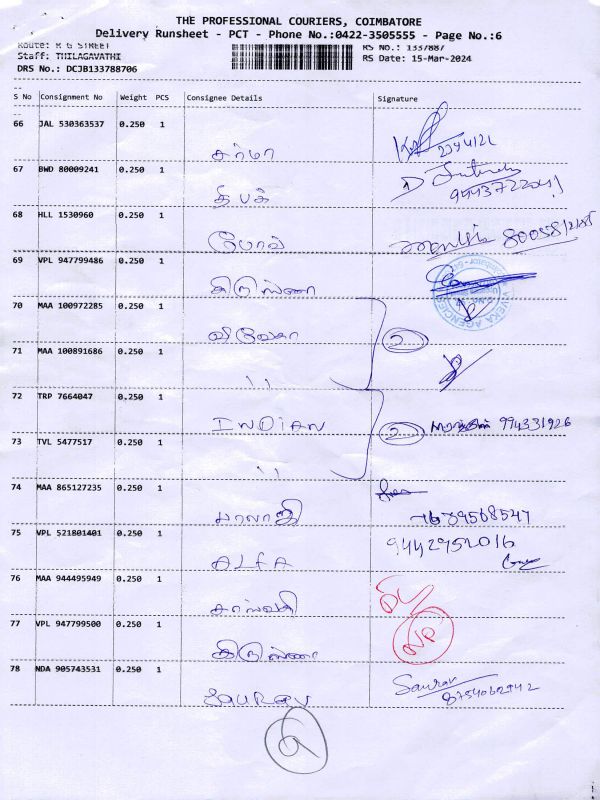 THE PROFESSIONAL COURIERS, COIMBATORE
Delivery Runsheet - PCT - Phone No.:0422-3505555 - Page No.:6
Route: R G STREET RS No.: 1337887
Staff: THILAGAVATHI RS Date: 15-Mar-2024
DRS No.: DCJB133788706
S No Consignment No Weight PCS Consignee Details Signature
66 JAL 530363537 0.250 1
சர்மா
67 BWD 80009241 0.250 1
தீபக்
68 HLL 1530960 0.250 1
69 VPL 947799486 0.250 1
கிருஸ்ணா
70 MAA 100972285 0.250 1
விவேகா 2
71 MAA 100891686 0.250 1
''
72 TRP 7664047 0.250 1
INDIAN 2 994331926
73 TVL 5477517 0.250 1
''
74 MAA 865127235 0.250 1
பாலாஜி 7639568547
75 VPL 521801401 0.250 1 9442952016
ALFA
76 MAA 944495949 0.250 1
77 VPL 947799500 0.250 1 NP
கிருஸ்ணா
78 NDA 905743531 0.250 1 Saurav
SAURAV 8754062942